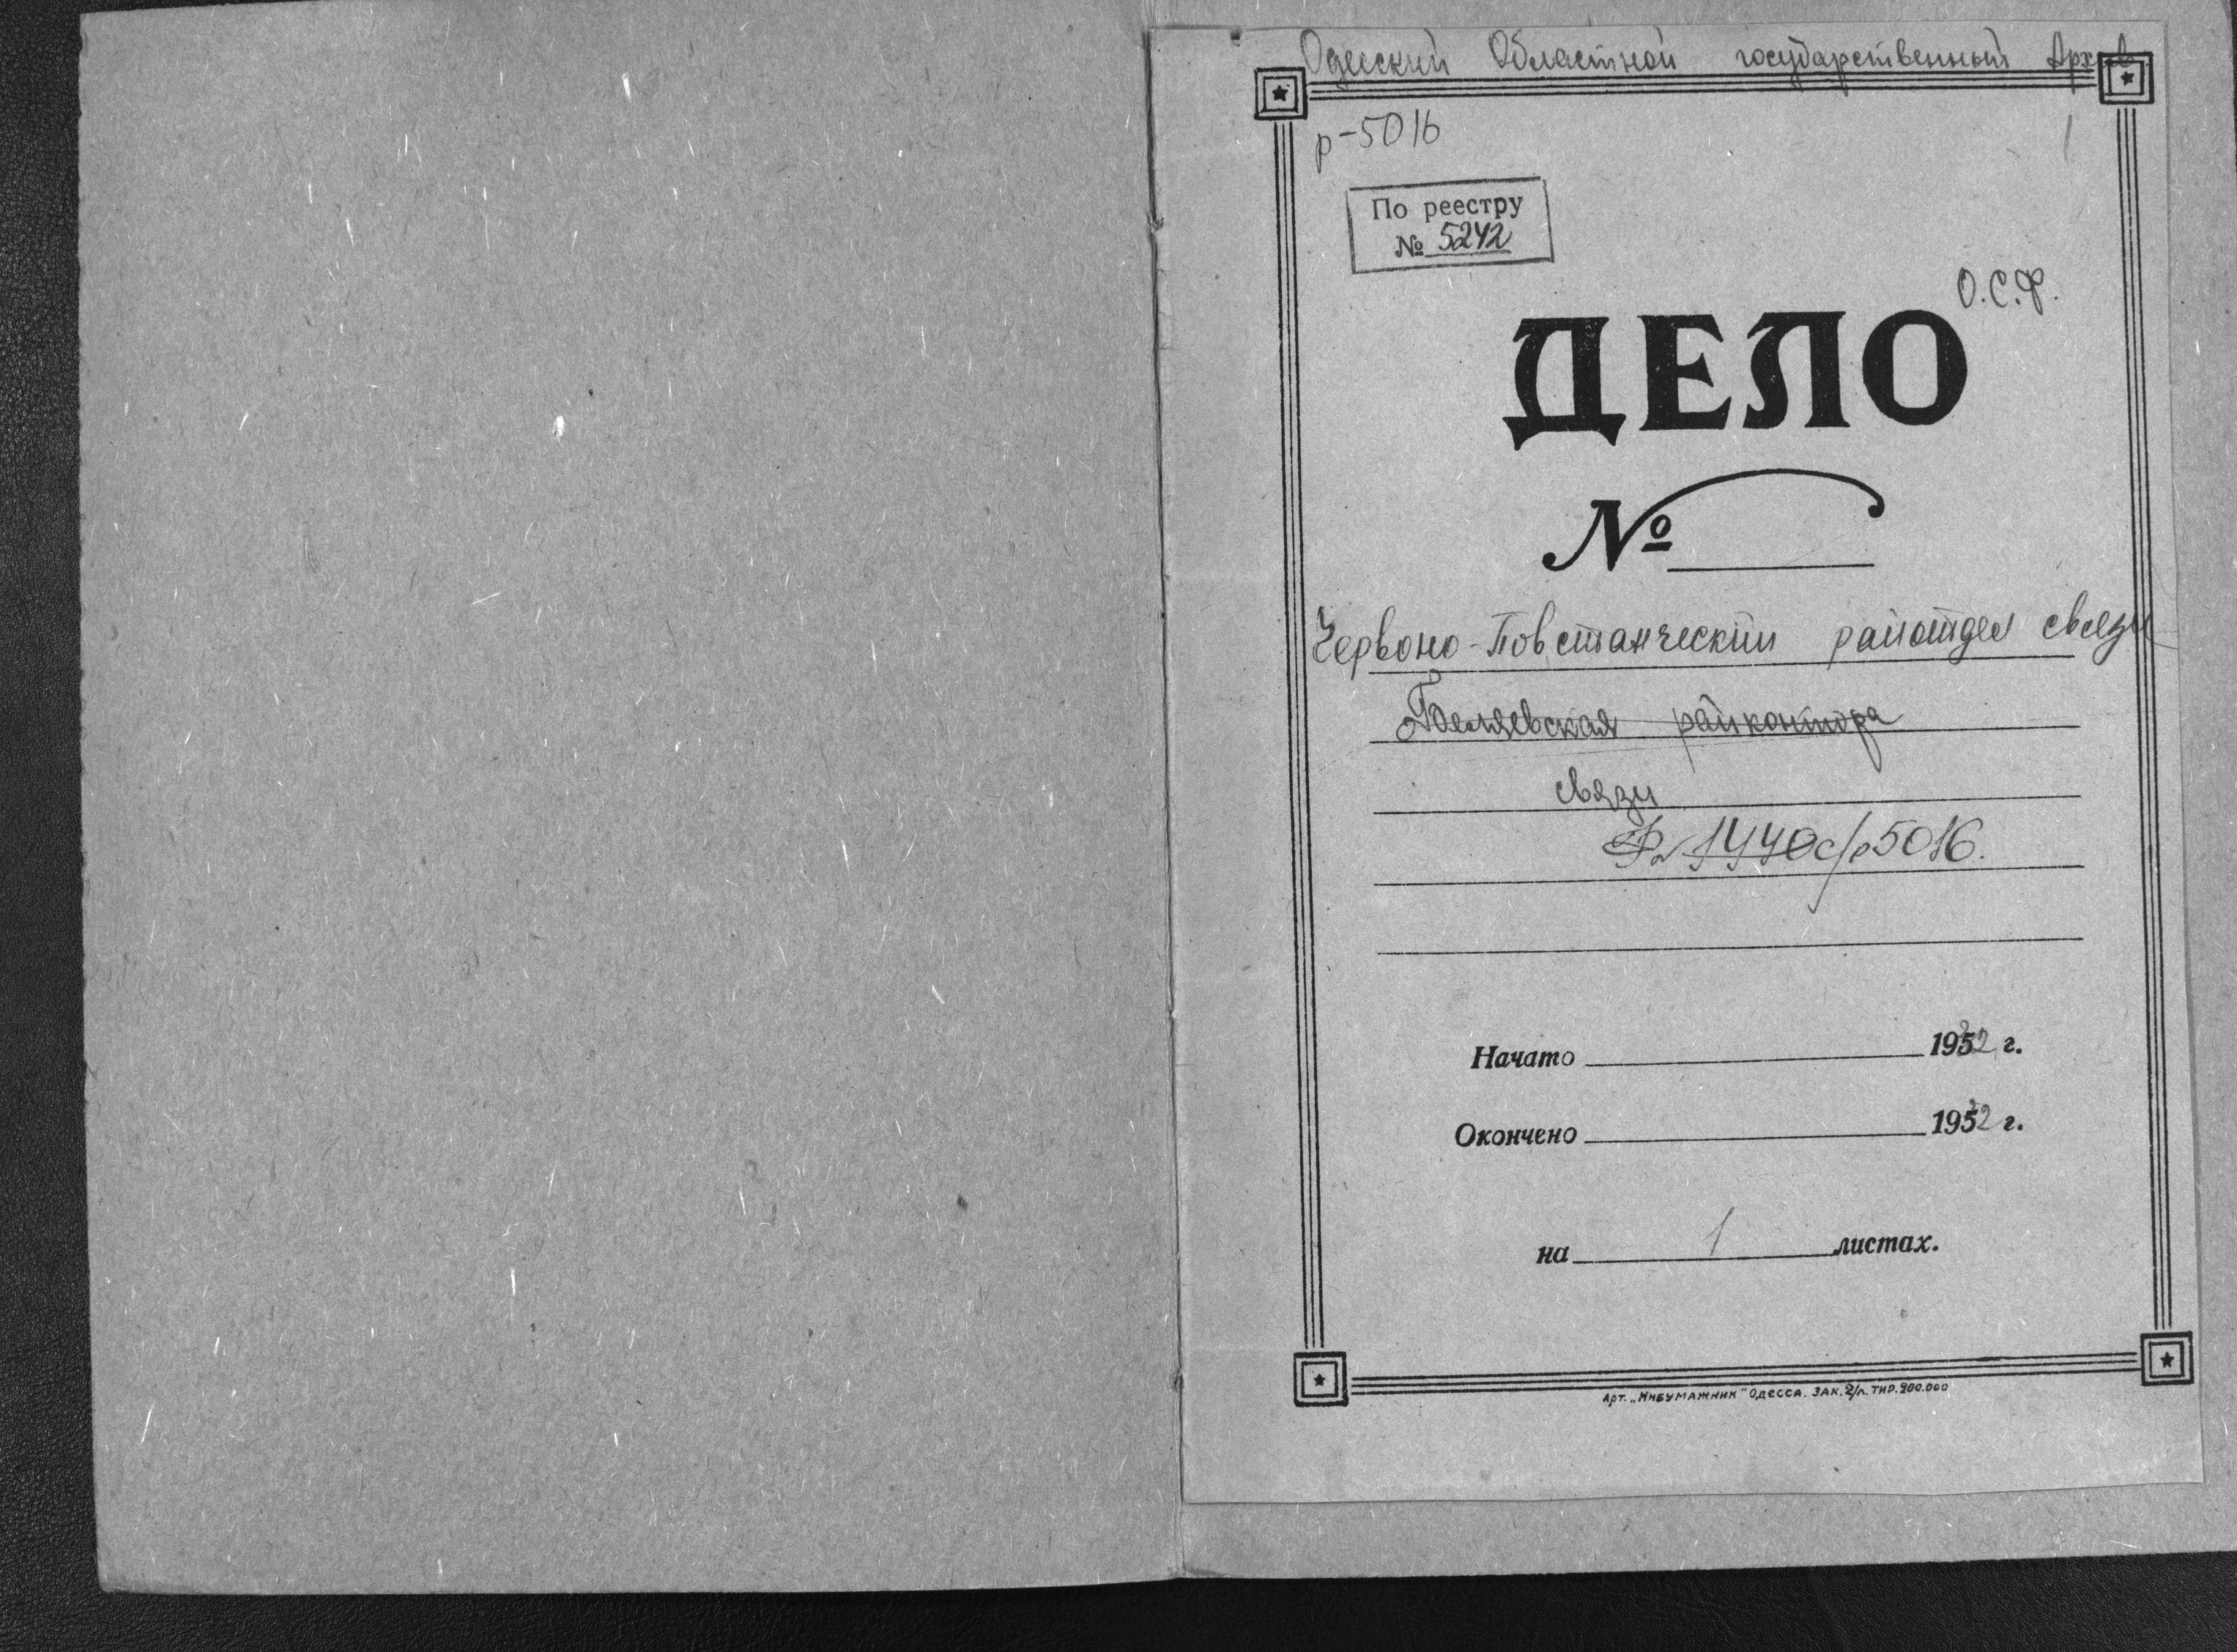 Одесский Областной государственный Архив
р-5016
1
По реестру
№ 5242
О.С.Ф.
ДЕЛО
№
Червоно-Повстанческий райотдел связи
Беляевская райконтора
связи
Ф. 1440с/р5016.
Начато 1952 г.
Окончено 1952 г.
на 1 листах.
Арт. „Инбумажник" Одесса. Зак. 2/п. тир. 900.000